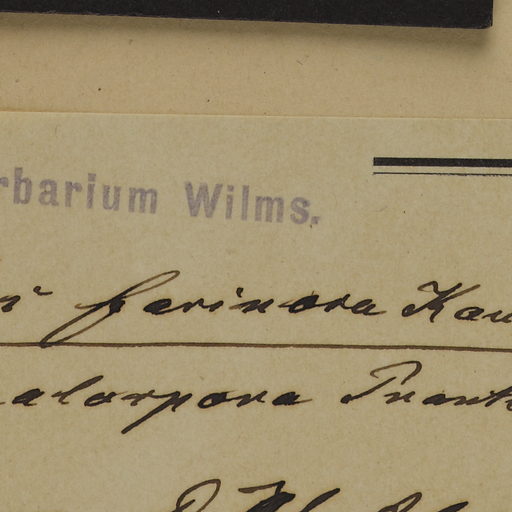 rbarium Wilms.
farinosa Kau
alospora Prant